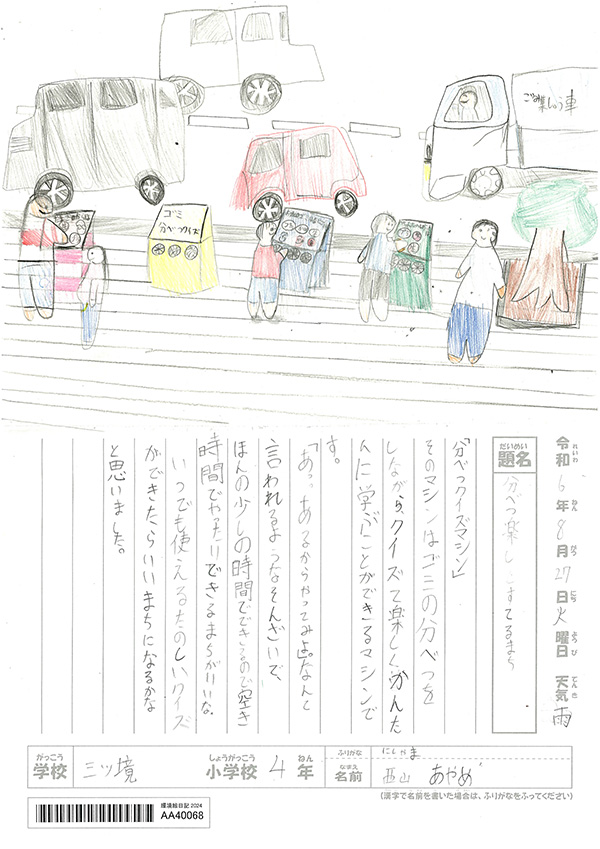 ごみ集しゅう車
ゴミ
分べつクイズ
令和6年8月27日火曜日 天気 雨
れいわ ねん がつ にち ようび てんき
だいめい
題名
「分べつクイズマシン」
そのマシンはゴミの分べつを
しながら、クイズで楽しくかんた
んに学ぶことができるマシンで
す。
「あっ。あるからやってみよ。」なんて
言われるようなそんざいで、
ほんの少しの時間でできるので空き
時間でやったりできるまちがいいな。
いつでも使えるたのしいクイズ
ができたらいいまちになるかな
と思いました。
がっこう しょうがっこう ねん ふりがな
学校 三ツ境 小学校 4年
なまえ
名前 西山 あやめ
(漢字で名前を書いた場合は、ふりがなをふってください)
環境絵日記 2024
AA40068